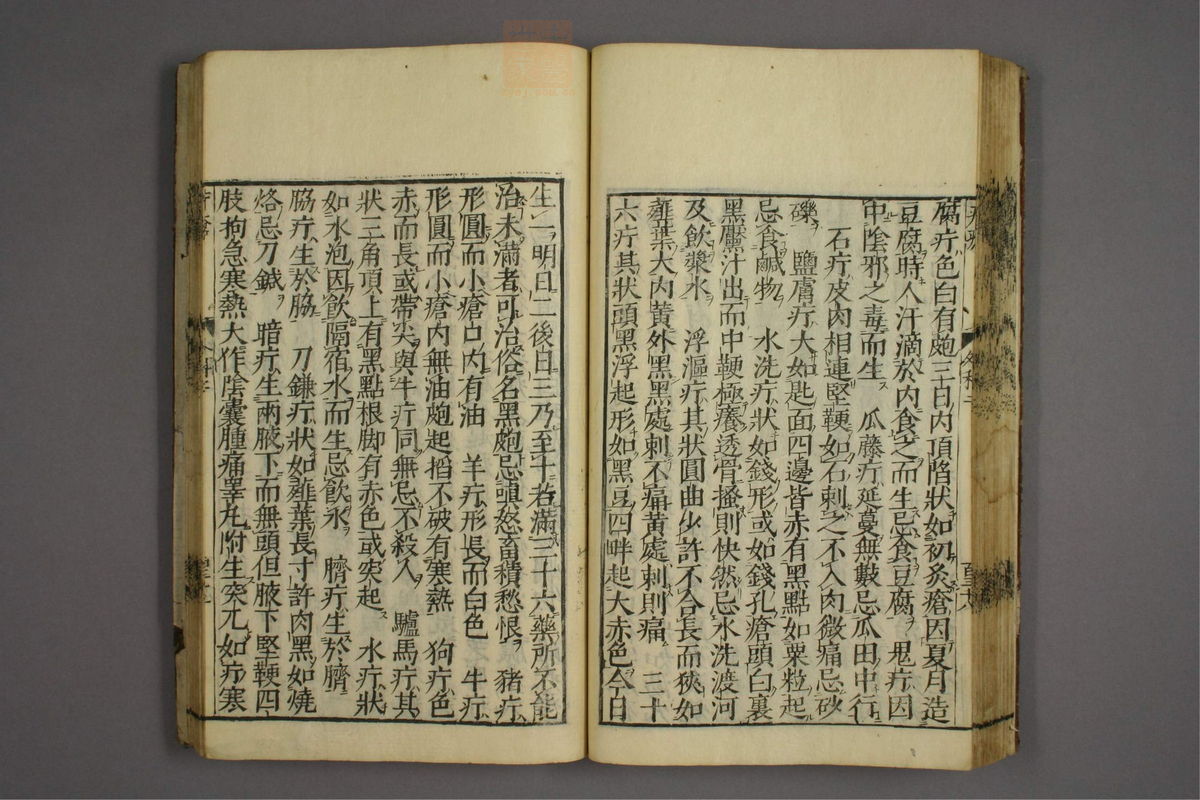 腐疔色白有皰三日内頂陷狀如初灸瘡因夏月造
豆腐時人汗滴於内食之而生忌食豆腐 鬼疔因
中陰邪之毒而生 瓜藤疔延蔓無數忌瓜田中行
石疔皮肉相連堅鞕如石刺之不入肉微痛忌砂
礫 鹽膚疔大如匙面四邊皆赤有黑點如粟粒起
忌食鹹物 水洗疔狀如錢形或如錢孔瘡頭白裏
黑黶汁出而中鞕極癢透骨搔則快然忌水洗渡河
及飲漿水 浮漚疔其狀圓曲少許不合長而狹如
薤葉大内黃外黑黑處刺不痛黃處刺則痛 三十
六疔其狀頭黑浮起形如黑豆四畔起大赤色今日
生一明日二後日三乃至十若滿三十六藥所不能
治未滿者可治俗名黑皰忌嗔怒畜積愁恨 豬疔
形圓而小瘡口内有油 羊疔形長而白色 牛疔
形圓而小瘡内無油皰起掐不破有寒熱 狗疔色
赤而長或帶尖與牛疔同無忌不殺人 驢馬疔其
狀三角頂上有黑點根脚有赤色或突起 水疔狀
如水泡因飲隔宿水而生忌飲水 臍疔生於臍
脇疔生於脇 刀鎌疔狀如薤葉長寸許肉黑如燒
烙忌刀鍼 暗疔生兩腋下而無頭但腋下堅鞕四
肢拘急寒熱大作陰囊腫痛睪丸附生突兀如疔寒